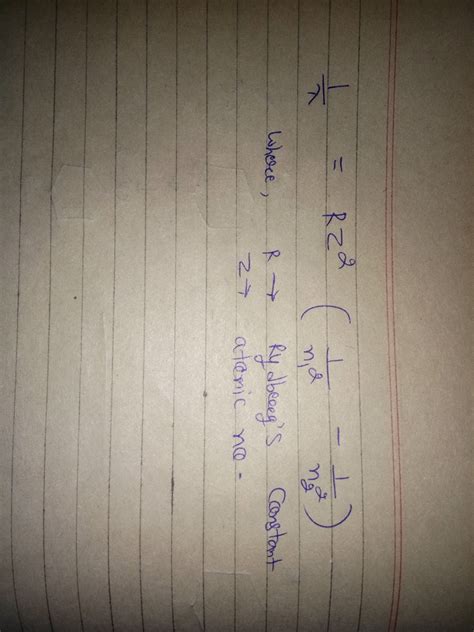 1/λ = RZ² ( 1/n₁² - 1/n₂² )
where, R → Rydberg's Constant
Z → atomic no.